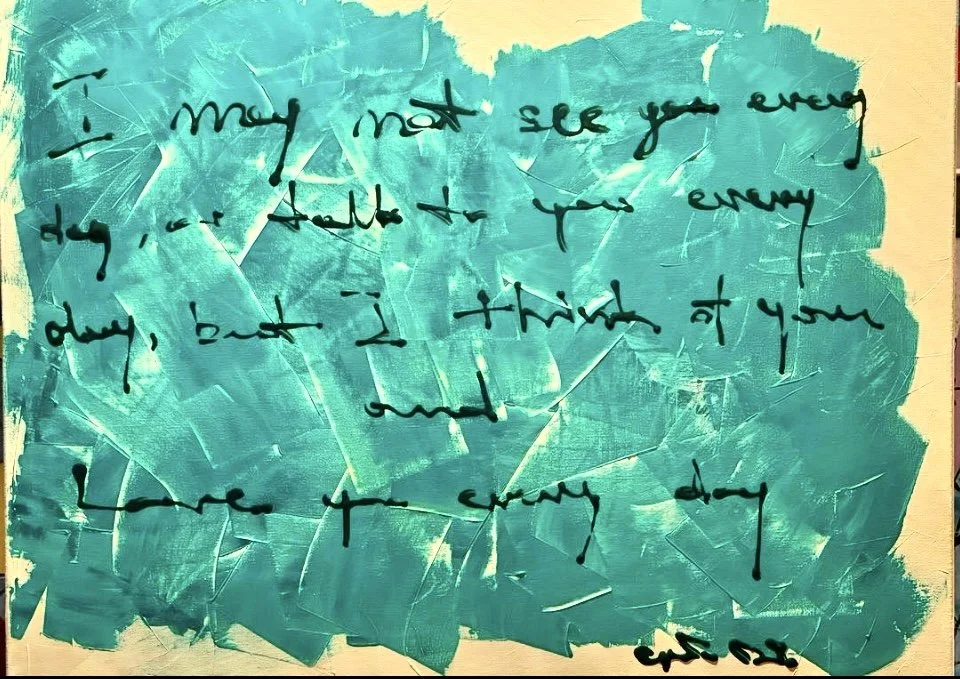 I may not see you every
day, or talk to you every
day, but I think of you
and
Love you every day